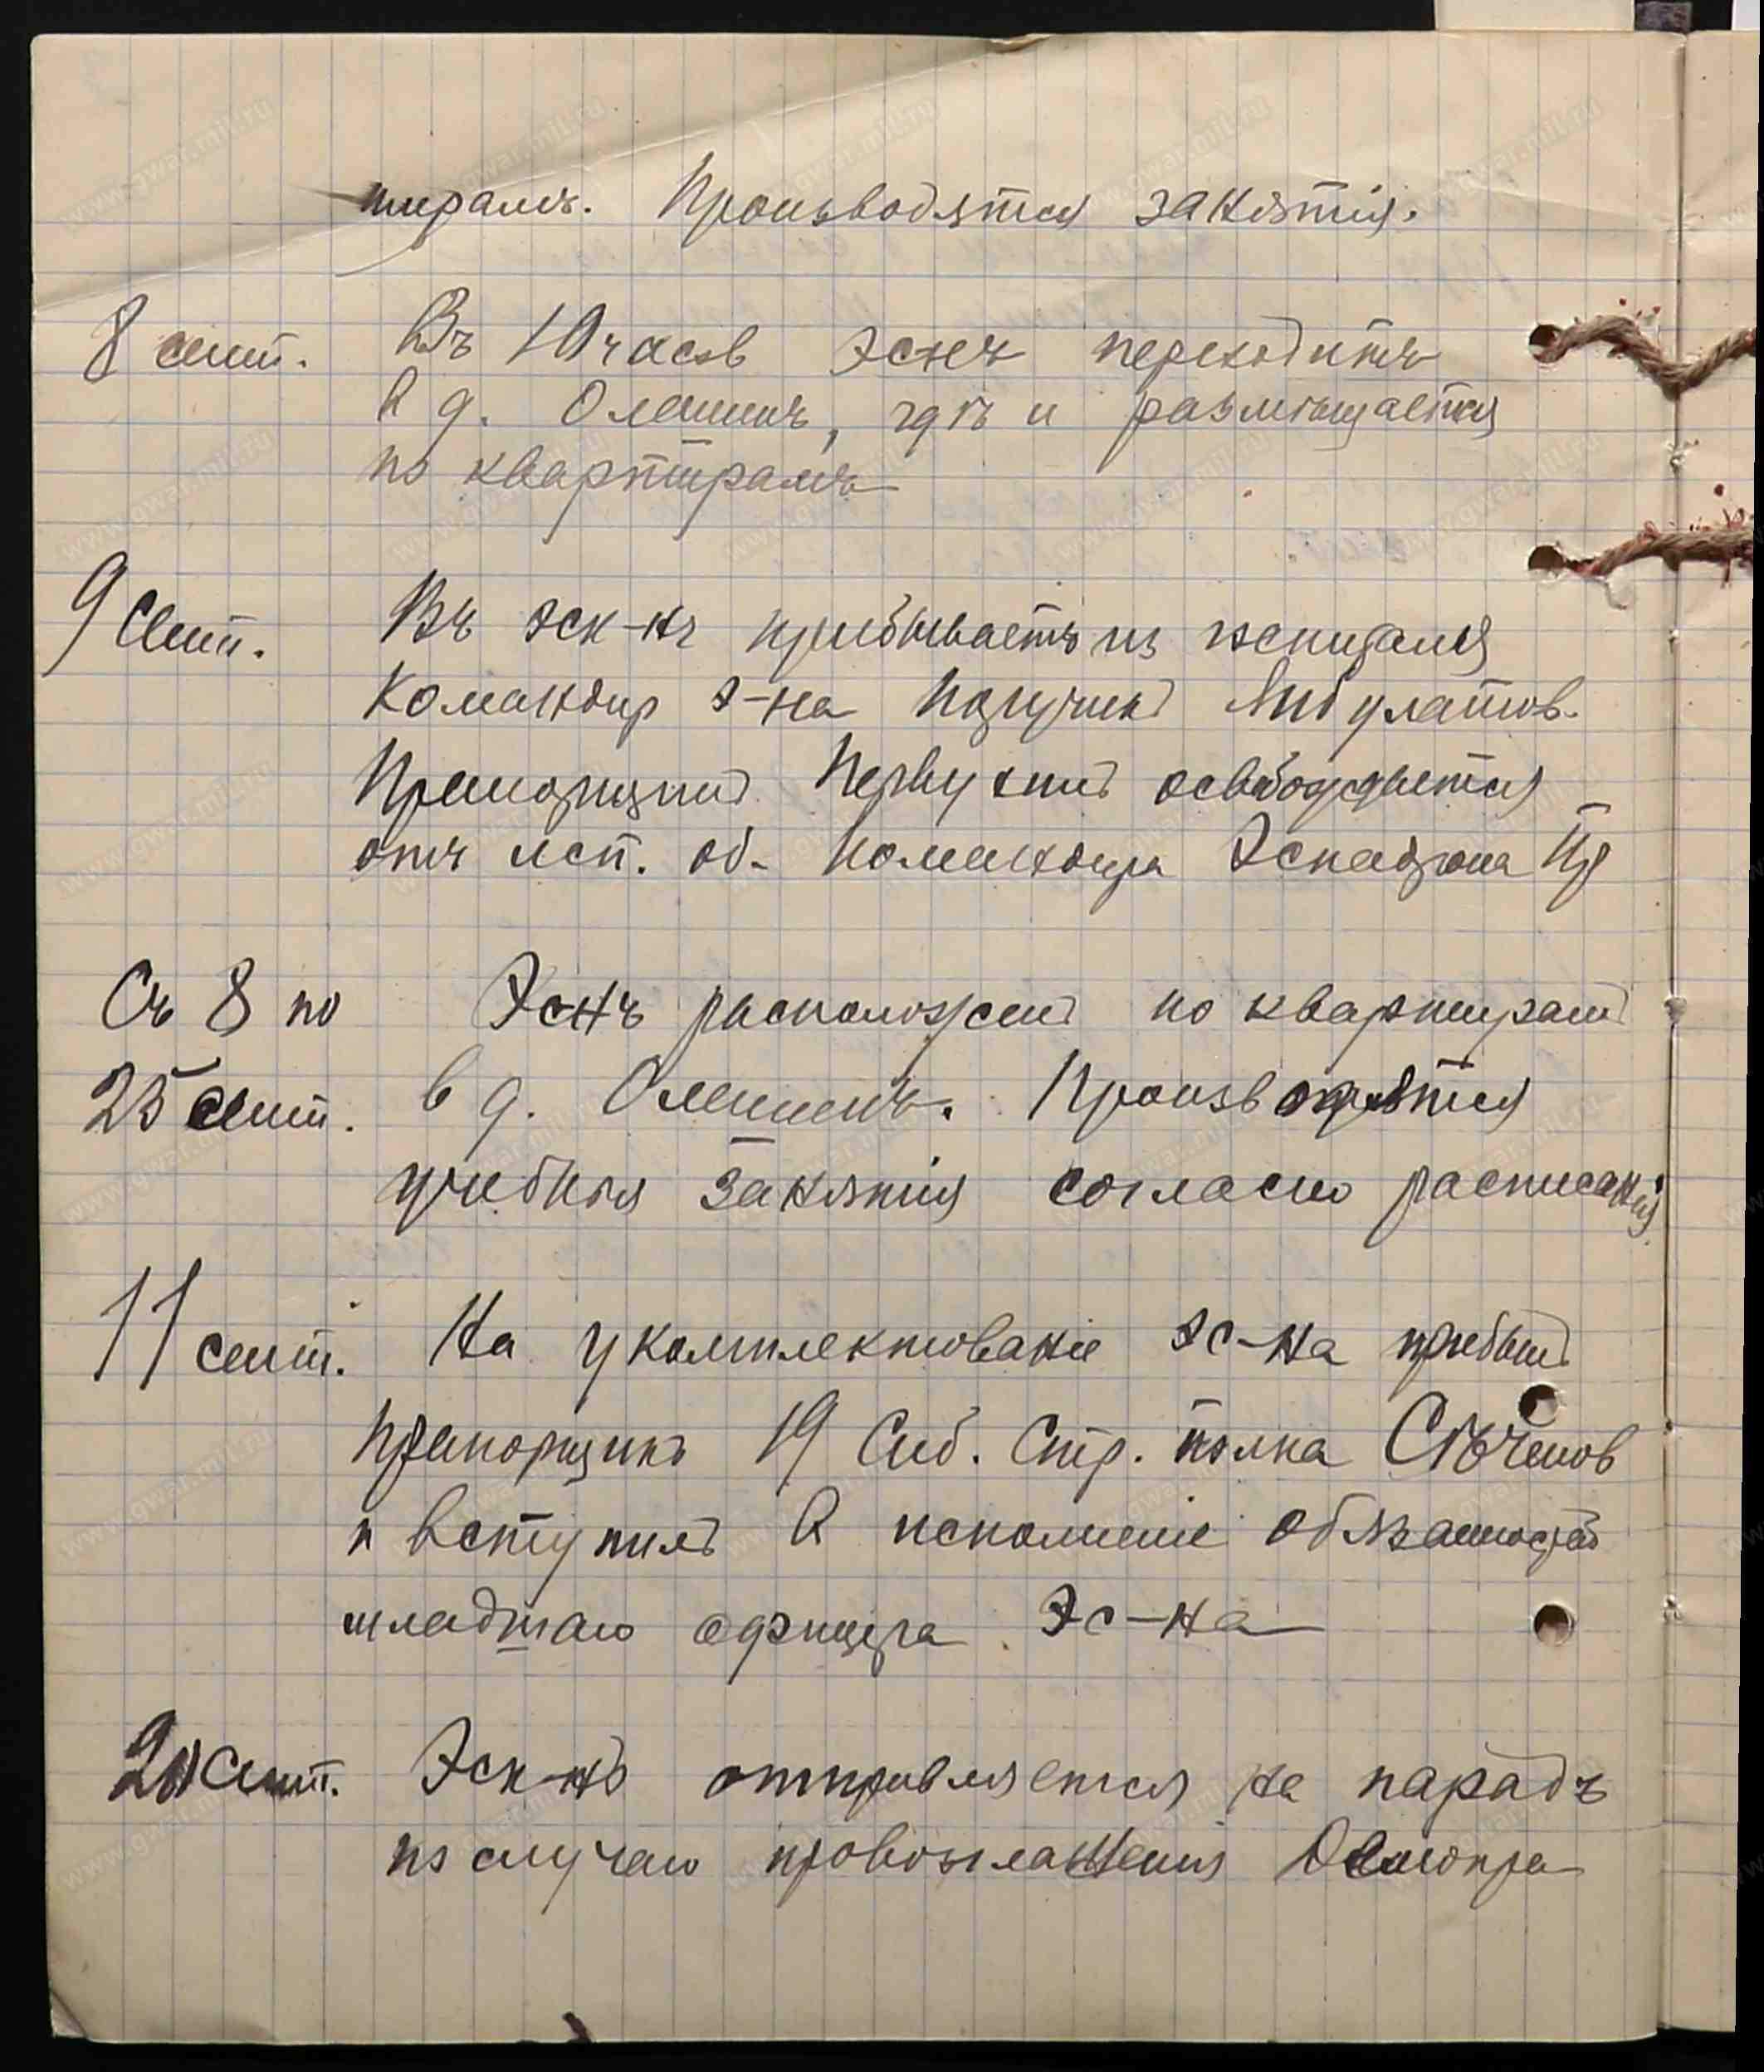 тирамъ. Производятся занятія.
8 сент. Въ 10 часов эснъ переходитъ
в д. Олешинъ, гдѣ и размѣщается
по квартирамъ
9 Сент. Въ эск-нъ прибываетъ из госпиталя
Командир э-на Поручикъ
Прапорщикъ Первухинъ освобождается
отъ исп. об. Командира Эскадрона
Съ 8 по Эснъ расположенъ по квартирам
25 сент. в д. Олешинъ. Производятся
учебныя занятія согласно расписанія
11 сент. На укомплектованіе эс-на прибылъ
прапорщикъ 19 Сиб. Стр. полка Сѣченов
и вступилъ в исполненіе обязанностей
младшаго офицера Эс-на
Сент. Эск-нъ отправляется на парадъ
по случаю провозглашенія